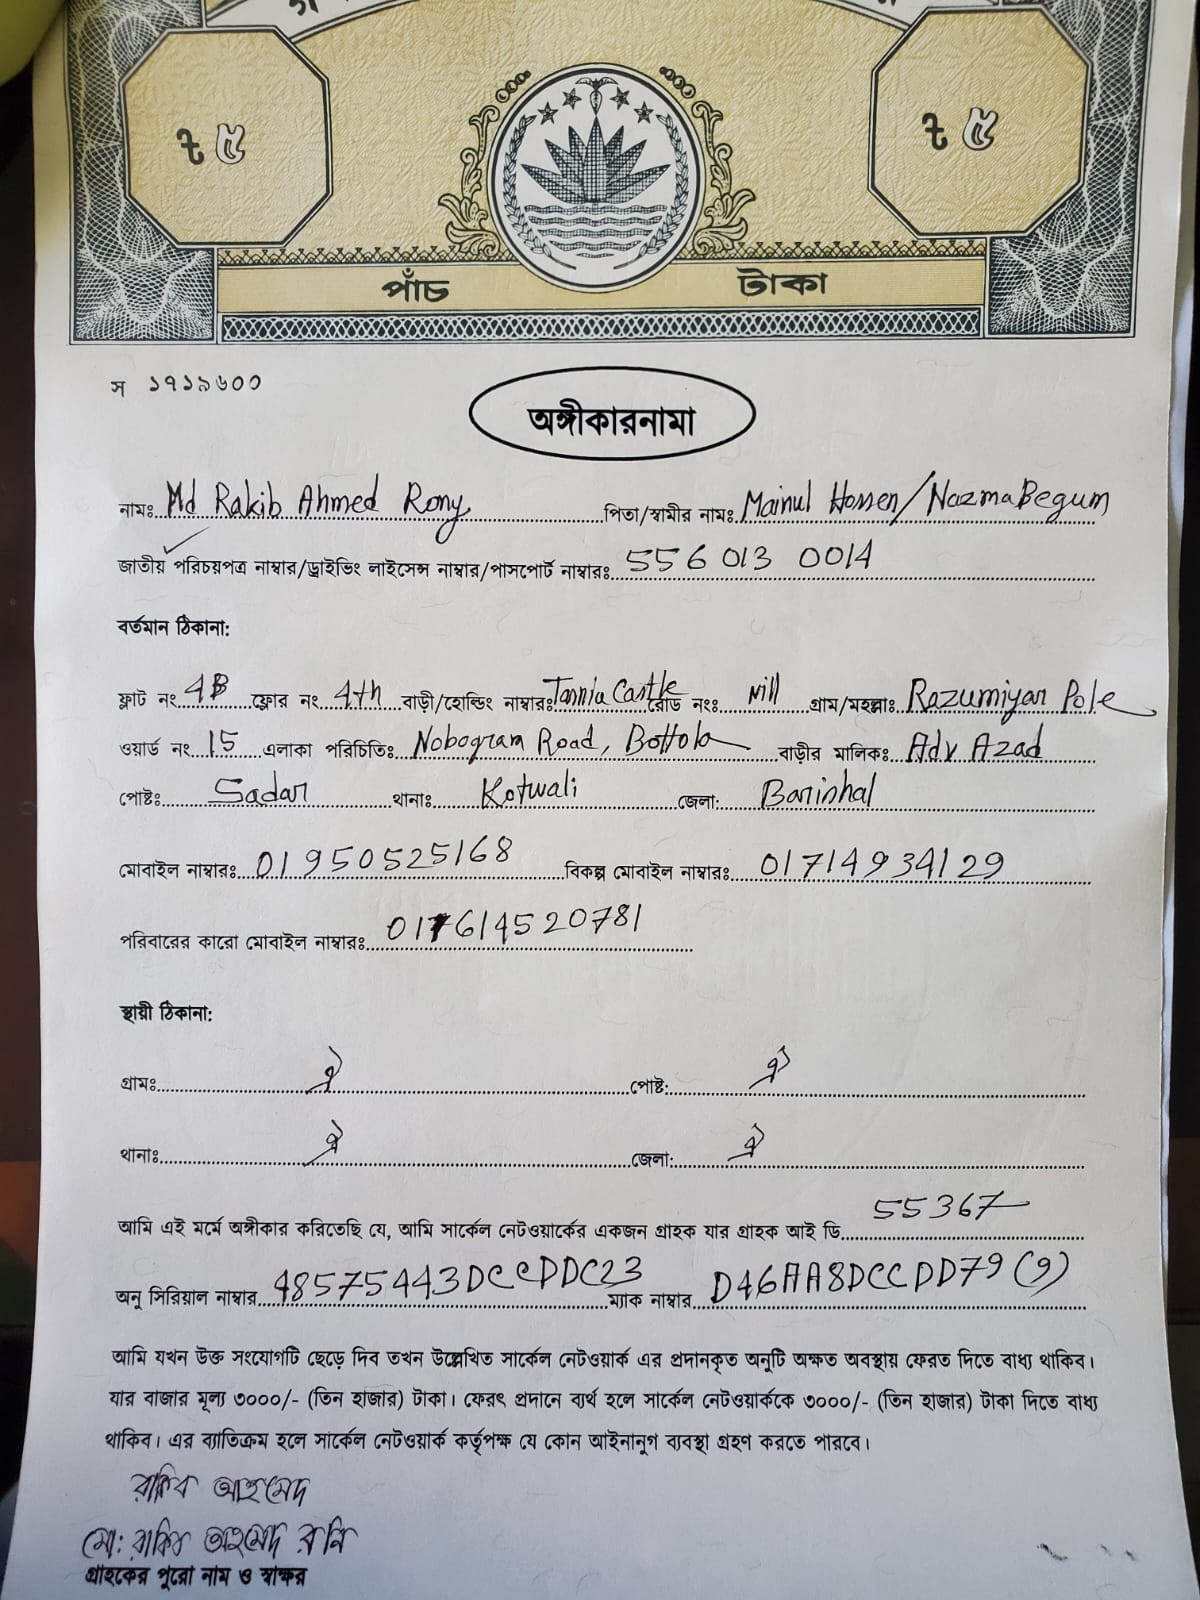 ৳ ৫ ৳ ৫
পাঁচ টাকা
স ১৭১৯৬০০
অঙ্গীকারনামা
নামঃ Md Rakib Ahmed Rony পিতা/স্বামীর নাম: Mainul Hossen/Nazma Begum
জাতীয় পরিচয়পত্র নাম্বার/ড্রাইভিং লাইসেন্স নাম্বার/পাসপোর্ট নাম্বারঃ 556 013 0014
বর্তমান ঠিকানা:
ফ্লাট নং 4B ফ্লোর নং 4th বাড়ী/হোল্ডিং নাম্বারঃ Tannia Castle রোড নংঃ Nill গ্রাম/মহল্লাঃ Razumiyar Pole
ওয়ার্ড নং 15 এলাকা পরিচিতিঃ Nobogram Road, Bottola বাড়ীর মালিকঃ Adv Azad
পোষ্টঃ Sadar থানাঃ Kotwali জেলা: Barishal
মোবাইল নাম্বারঃ 01950525168 বিকল্প মোবাইল নাম্বারঃ 01714934129
পরিবারের কারো মোবাইল নাম্বারঃ 017614520781
স্থায়ী ঠিকানা:
গ্রামঃ ঐ পোষ্ট: ঐ
থানাঃ ঐ জেলা: ঐ
আমি এই মর্মে অঙ্গীকার করিতেছি যে, আমি সার্কেল নেটওয়ার্কের একজন গ্রাহক যার গ্রাহক আই ডি 55367
অনু সিরিয়াল নাম্বার 48575443DCCDDC23 ম্যাক নাম্বার D46AA8DCCDD79 (9)
আমি যখন উক্ত সংযোগটি ছেড়ে দিব তখন উল্লেখিত সার্কেল নেটওয়ার্ক এর প্রদানকৃত অনুটি অক্ষত অবস্থায় ফেরত দিতে বাধ্য থাকিব।
যার বাজার মূল্য ৩০০০/- (তিন হাজার) টাকা। ফেরৎ প্রদানে ব্যর্থ হলে সার্কেল নেটওয়ার্ককে ৩০০০/- (তিন হাজার) টাকা দিতে বাধ্য
থাকিব। এর ব্যতিক্রম হলে সার্কেল নেটওয়ার্ক কর্তৃপক্ষ যে কোন আইনানুগ ব্যবস্থা গ্রহণ করতে পারবে।
রাকিব আহমেদ
মো: রাকিব আহমেদ রনি
গ্রাহকের পুরো নাম ও স্বাক্ষর